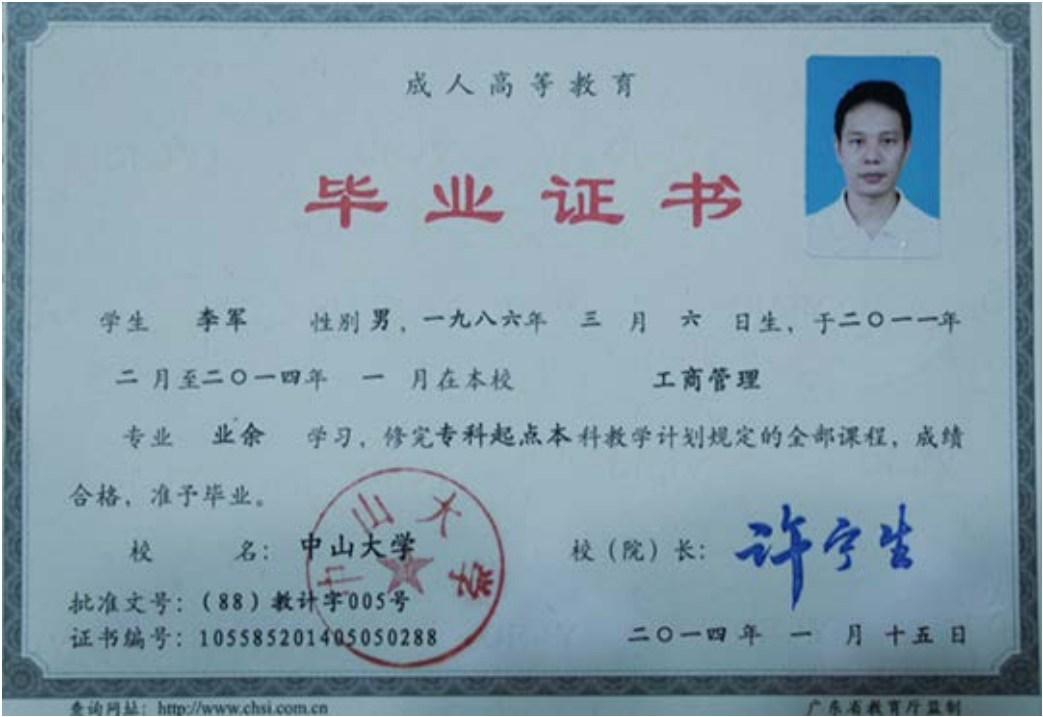 成人高等教育
毕业证书
学生 李军 性别男，一九八六年 三 月 六 日生，于二〇一一年
二 月至二〇一四年 一 月在本校 工商管理
专业 业余 学习，修完专科起点本科教学计划规定的全部课程，成绩
合格，准予毕业。
校 名：中山大学 校（院）长：许宁生
中山大学
批准文号：（88）教计字005号
证书编号：105585201405050288 二〇一四年 一 月 十五 日
查询网址：http://www.chsi.com.cn 广东省教育厅监制